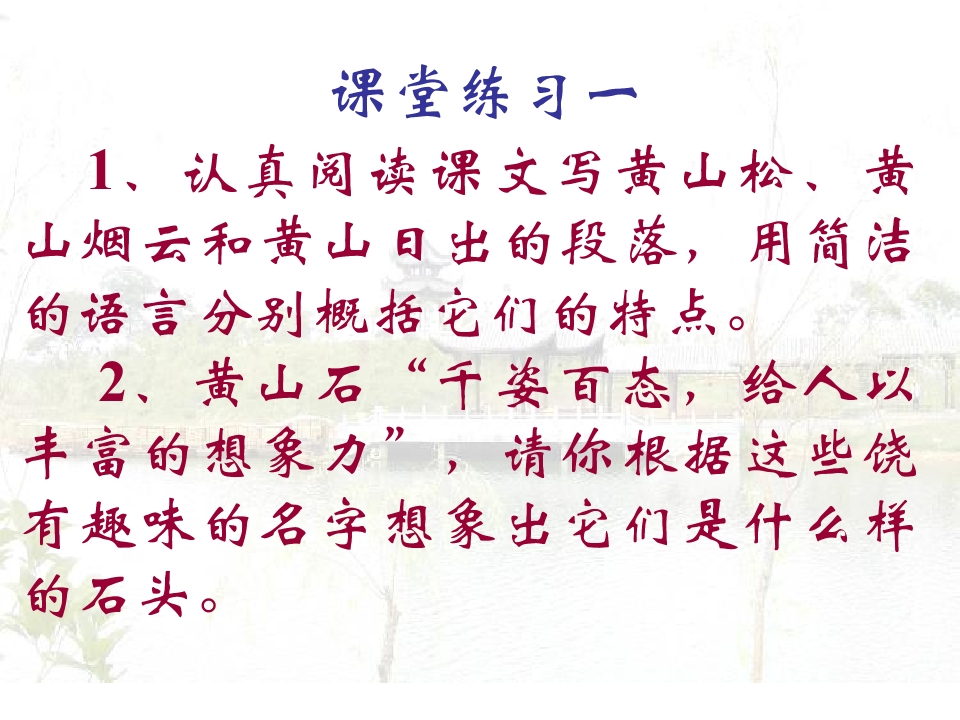 课堂练习一
1、认真阅读课文写黄山松、黄
山烟云和黄山日出的段落，用简洁
的语言分别概括它们的特点。
2、黄山石“千姿百态，给人以
丰富的想象力”，请你根据这些饶
有趣味的名字想象出它们是什么样
的石头。